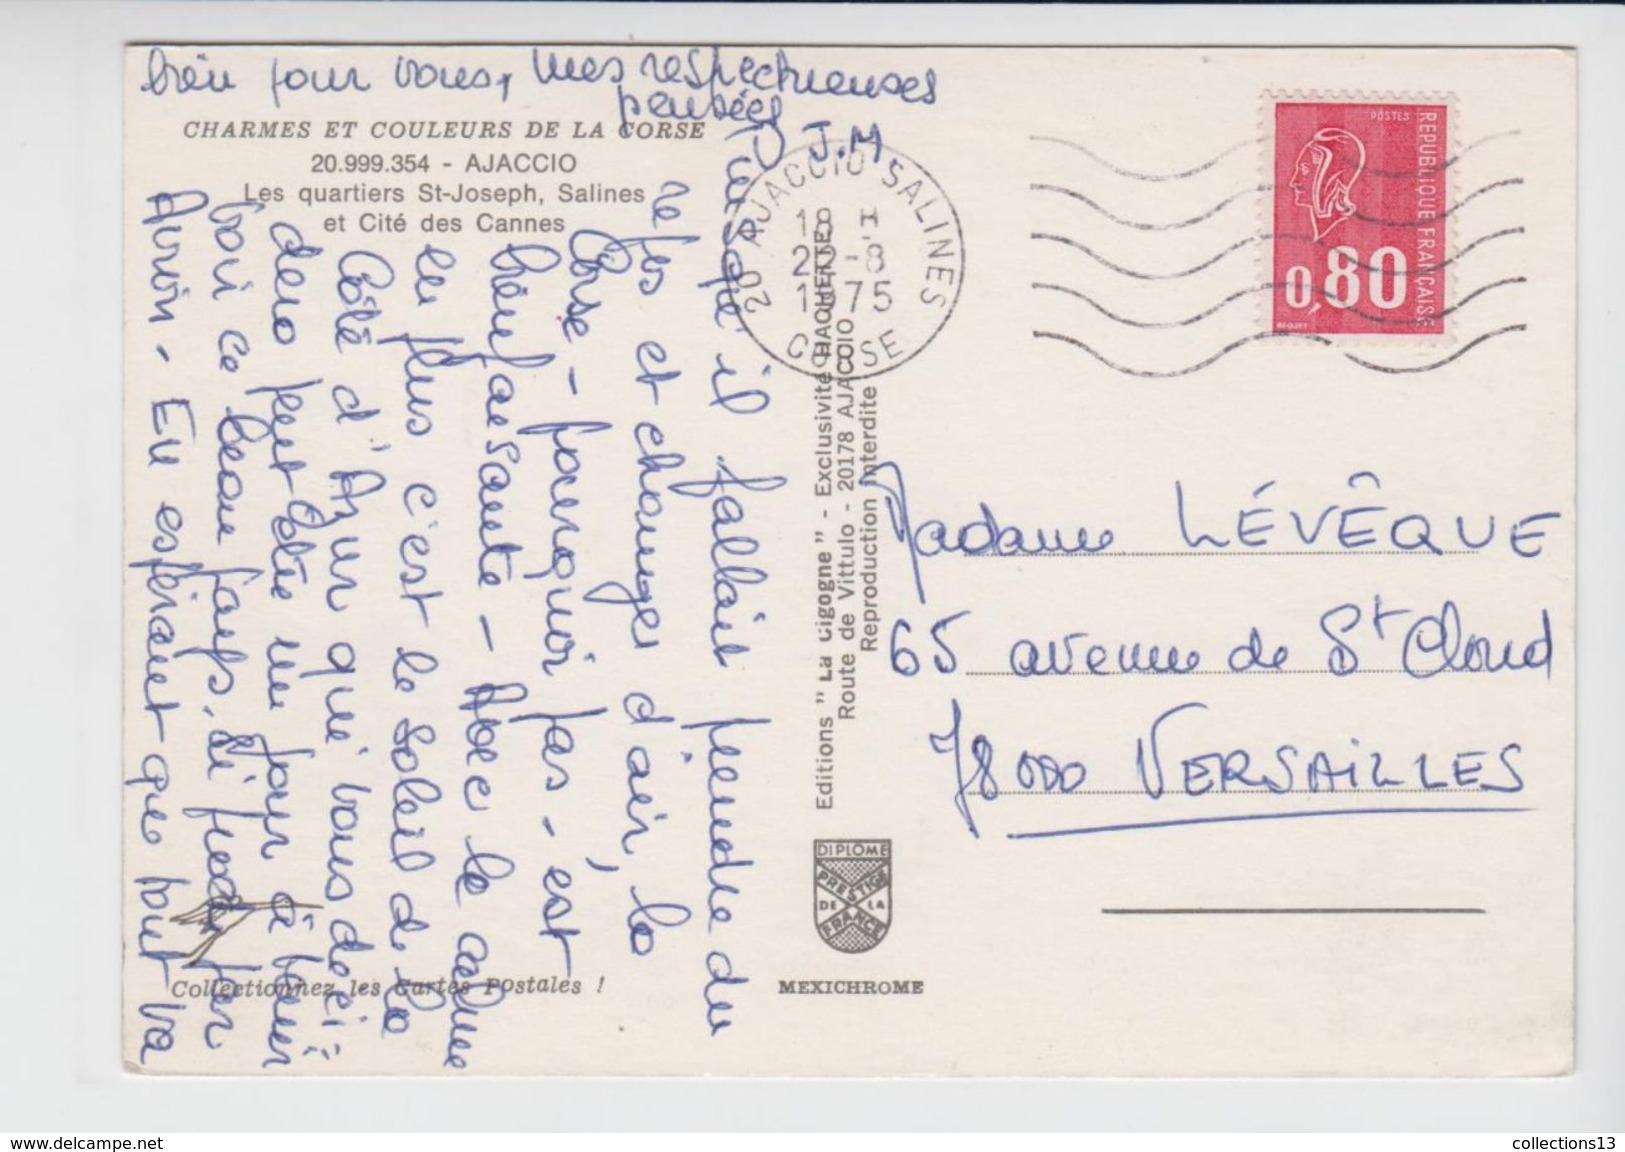 CHARMES ET COULEURS DE LA CORSE
20.999.354 - AJACCIO
Les quartiers St-Joseph, Salines
et Cité des Cannes
Puisqu'il fallait prendre du
repos et changer d'air, la
Corse - pourquoi pas - est
bienfaisante - Avec le calme
en plus c'est le soleil de la
Côte d'Azur que vous
peut être un jour à
voici ce beau pays. si
Aurin - En espérant que tout va
bien pour vous, mes respectueuses
pensées
J.M.
20 AJACCIO SALINES
18 H
22-8
1975
CORSE
POSTES
REPUBLIQUE FRANÇAISE
0,80
BEQUET
Editions "La Cigogne" - Exclusivité HACHETTE
Route de Vittulo - 20178 AJACCIO
Reproduction interdite
Madame LÉVÊQUE
65 avenue de St Cloud
78000 VERSAILLES
DIPLOME
PRESTIGE
DE LA
FRANCE
Collectionnez les Cartes Postales !
MEXICHROME
www.delcampe.net
collections13